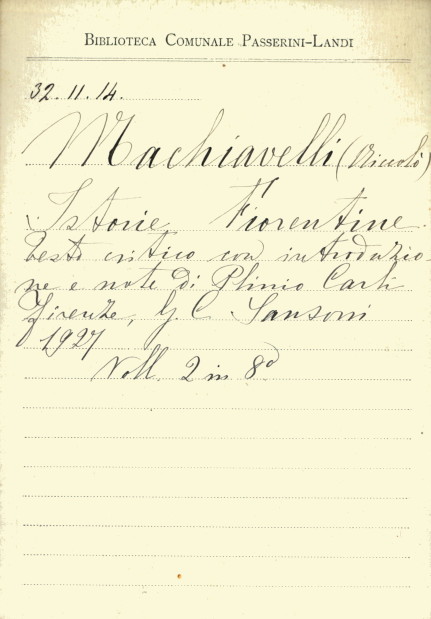 BIBLIOTECA COMUNALE PASSERINI-LANDI
32.11.14.
Machiavelli (Niccolò)
Istorie Fiorentine.
testo critico con introduzio-
ne e note di Plinio Carli
Firenze, G C Sansoni
1927
Voll. 2 in 8°